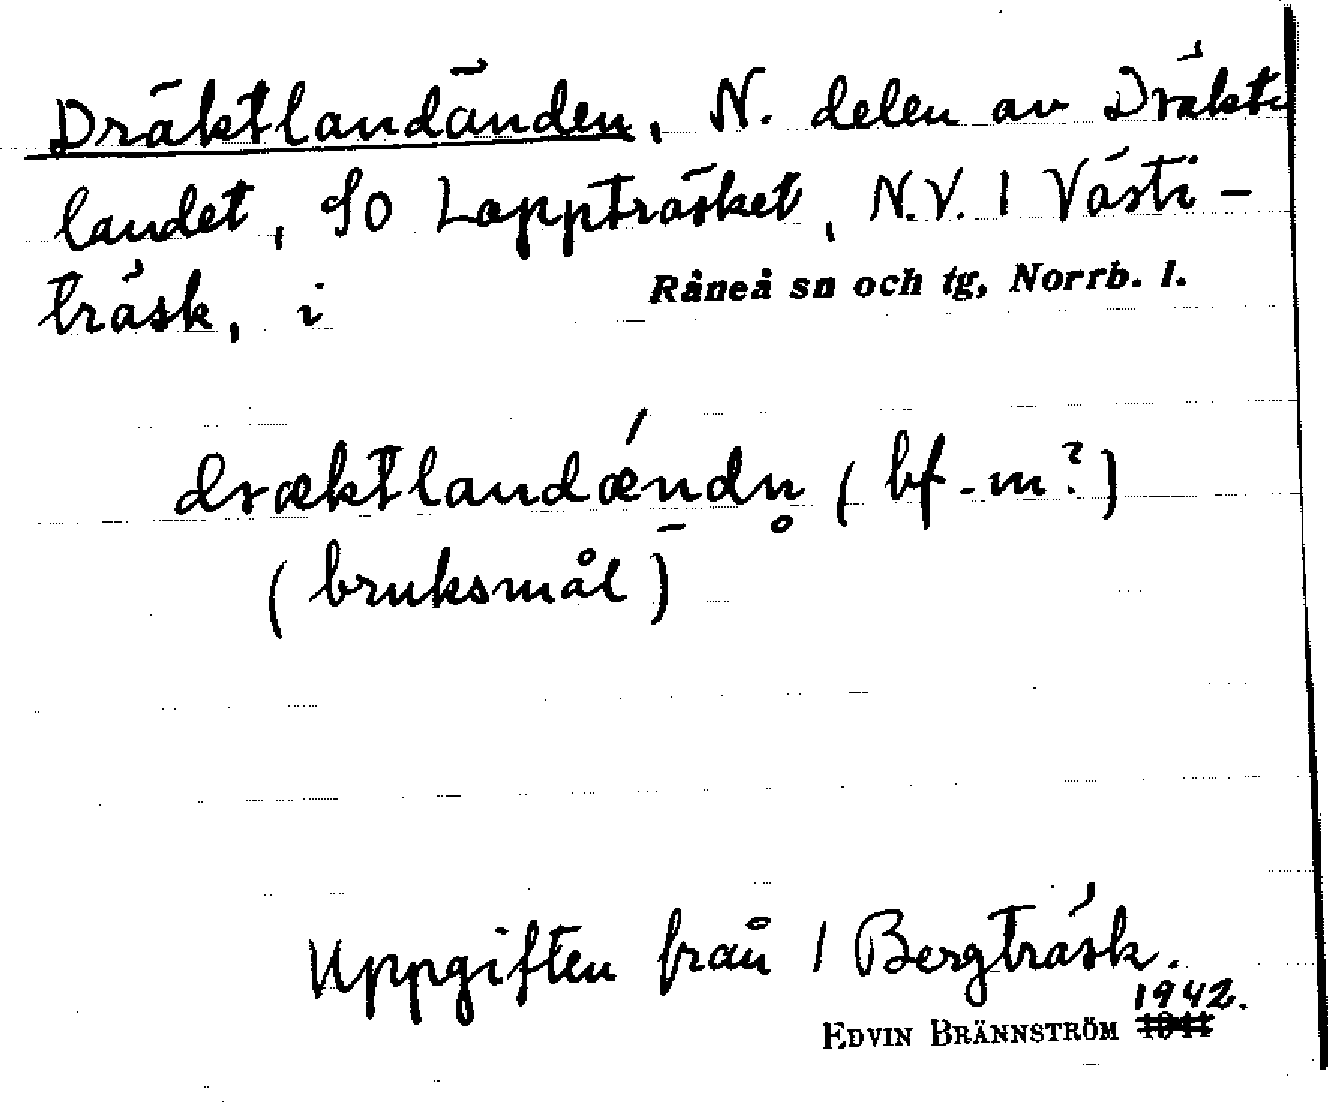 Dräktlandänden, N. delen av Dräkt-
landet, SO Lappträsket, N.V. 1 Västi-
träsk, i Råneå sn och tg, Norrb. l.
dræktlandǽndn̥ (bf. m?)
(bruksmål)
Uppgiften från 1 Bergträsk.
1942.
EDVIN BRÄNNSTRÖM 1941